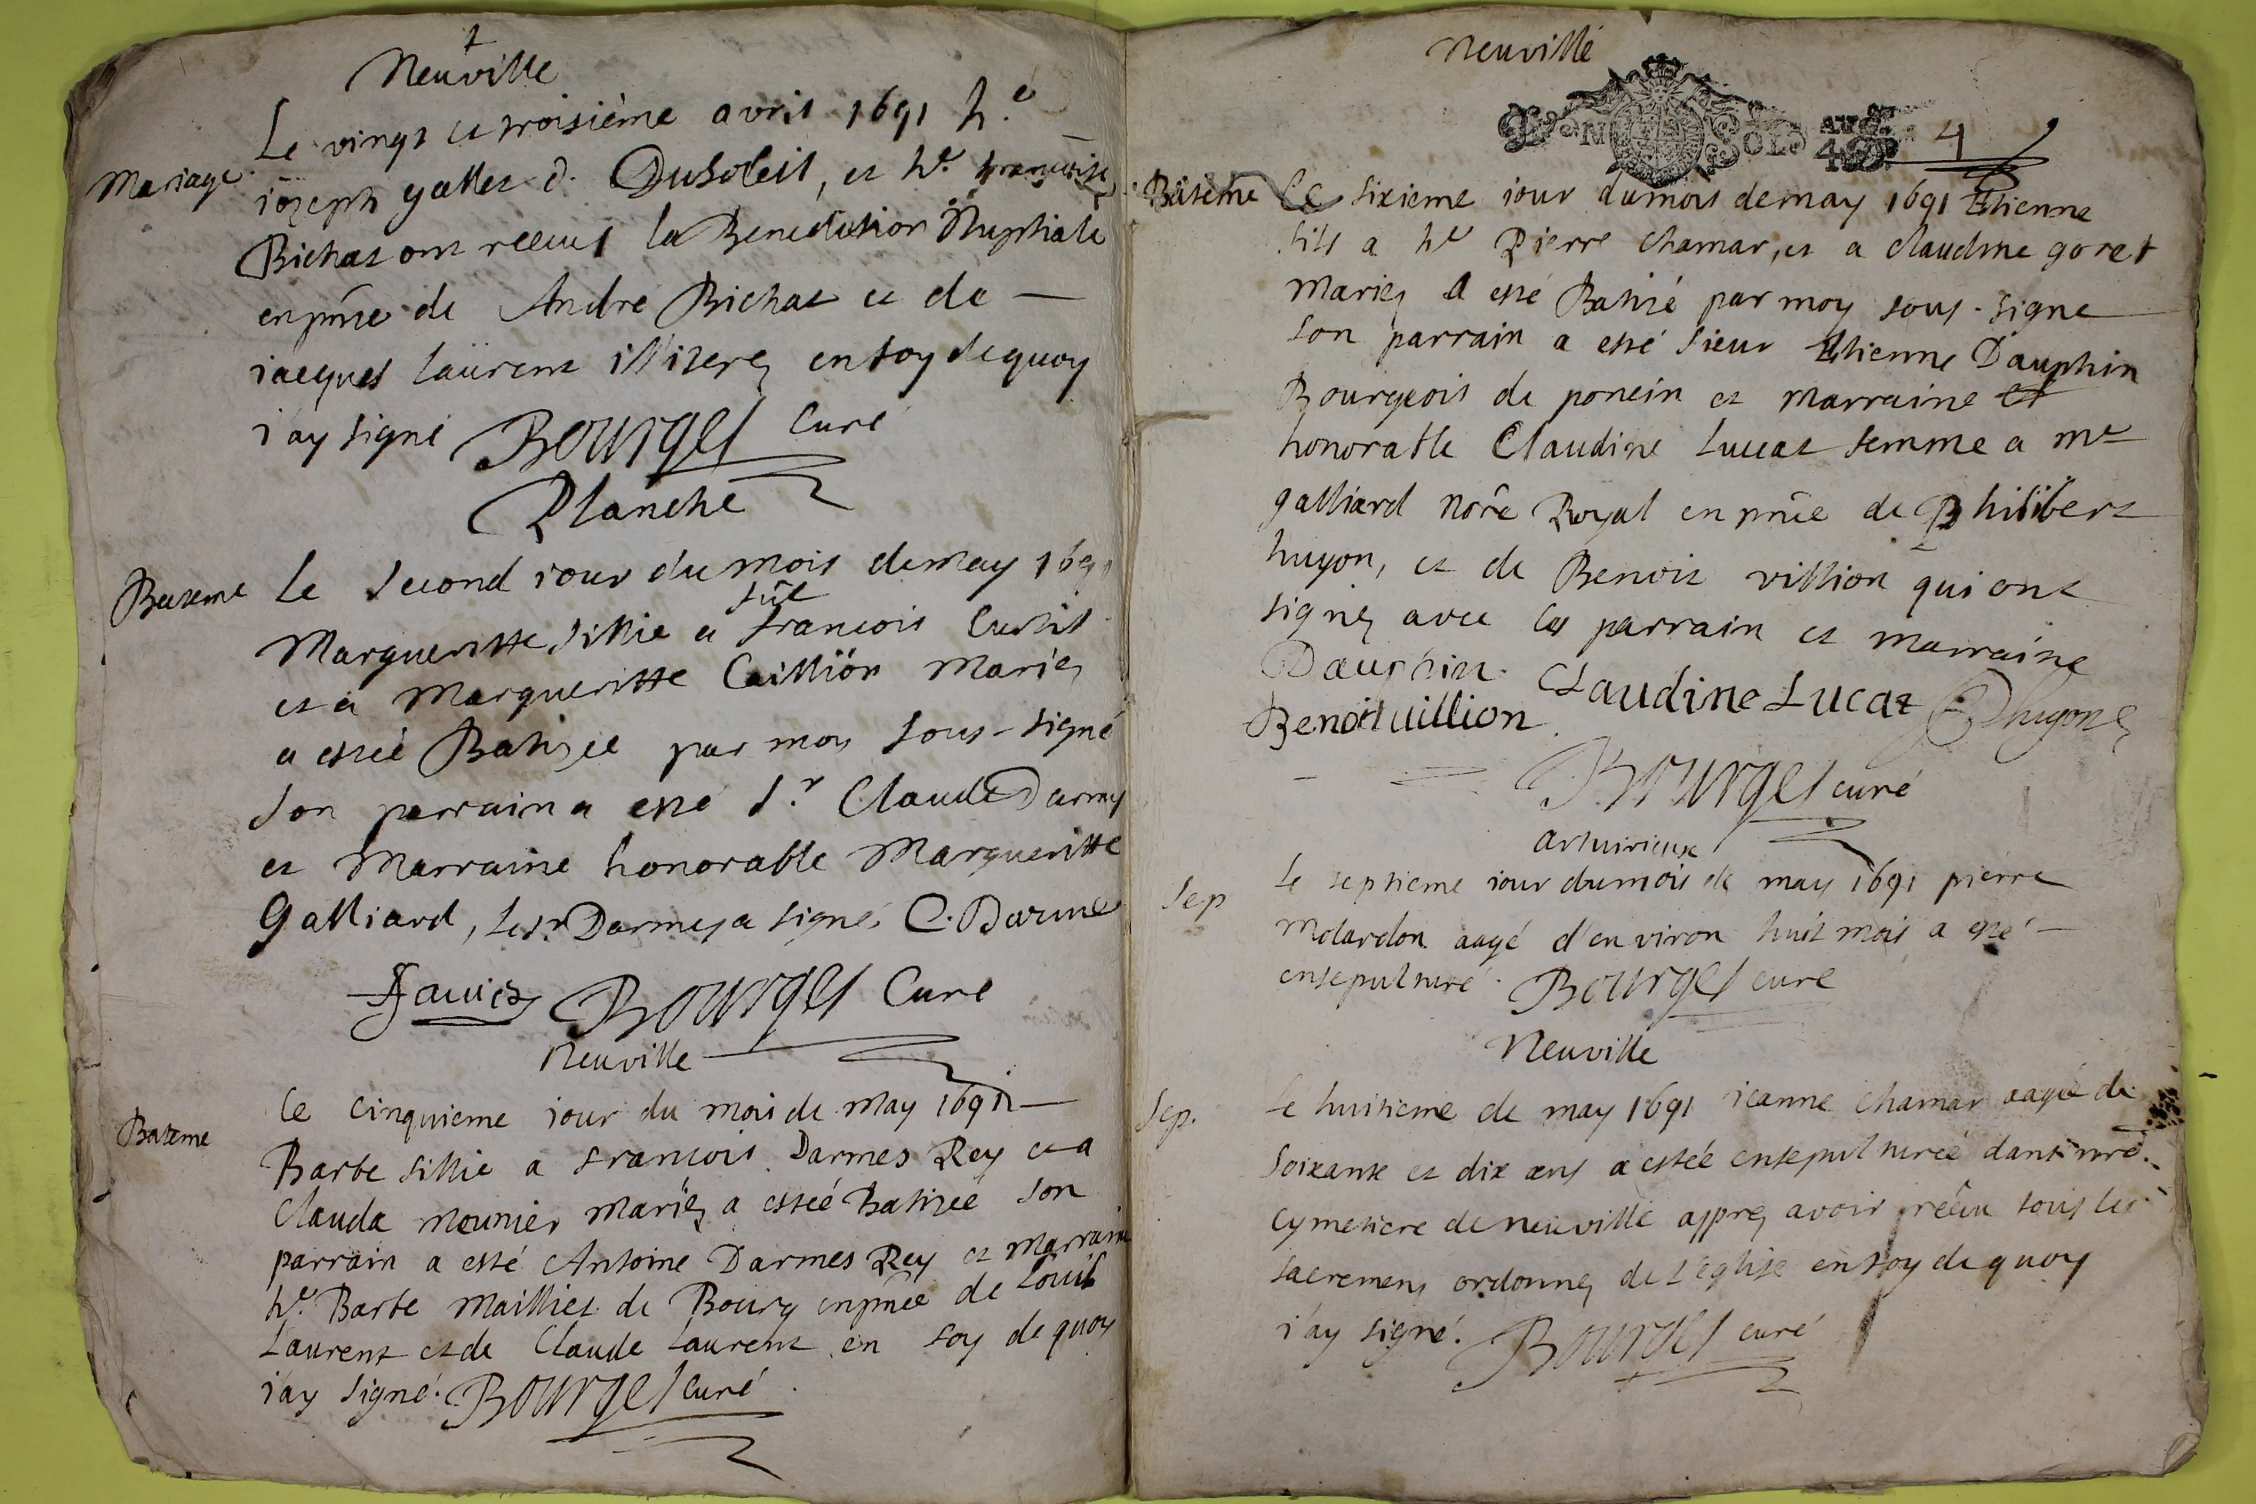 Neuville
Le vingt et troisième avril 1691 h.e
Mariage
ioseph gallet d. Dusoleil, et h.e francoise
Bichat ont receus la Benediction Nuptiale
en pnce de André Bichat et de —
iacques laurent illiterez en foy de quoy
i'ay signé Bourges Curé
Planche
Bateme
Le second iour du mois de may 1691
Margueritte fillie a francois Curtil
et a Margueritte Caillion mariez
a estée Batisée par moy sous-signé
son parrain a esté s.r Claude Darmes
et Marraine honorable Margueritte
Galliard, le sr Darmes a signé, C. Darmes
Bourges Curé
Neuville
Bateme
Le cinquieme iour du mois de may 1691 —
Barbe fillie a francois Darmes Rey et a
Clauda mounier mariez a estée Batisée son
parrain a esté Antoine Darmes Rey et marraine
h.e Barbe Mailliet de Bourg en pnce de Louis
Laurent et de Claude Laurent en foy de quoy
i'ay signé. Bourges curé
Neuville
SOLS
4
Bateme
Le sixieme iour du mois de may 1691 Etienne
fils a h.e Pierre Chamar, et a Claudine goret
mariez a esté Batisé par moy sous-signe
son parrain a esté sieur Etienne Dauphin
Bourgeois de poncin et marraine et
honorable Claudine Lucat femme a me
galliard nore Royal en pnce de Philibert
hugon, et de Benoit villion qui ont
signez avec les parrain et marraine
Dauphin. Claudine Lucat
Benoit uillion
Bourges curé
Sep
Le septieme iour du mois de may 1691 pierre
Molardon aagé d'environ huit mois a esté —
ensepulturé. Bourges curé
Neuville
Sep.
Le huitieme de may 1691 ieanne chamar aagée de
soixante et dix ans a estée ensepulturée dans nre
cymetiere de neuville apprez avoir receu tous les
sacremens ordonnez de l'eglise en foy de quoy
i'ay signé. Bourges curé